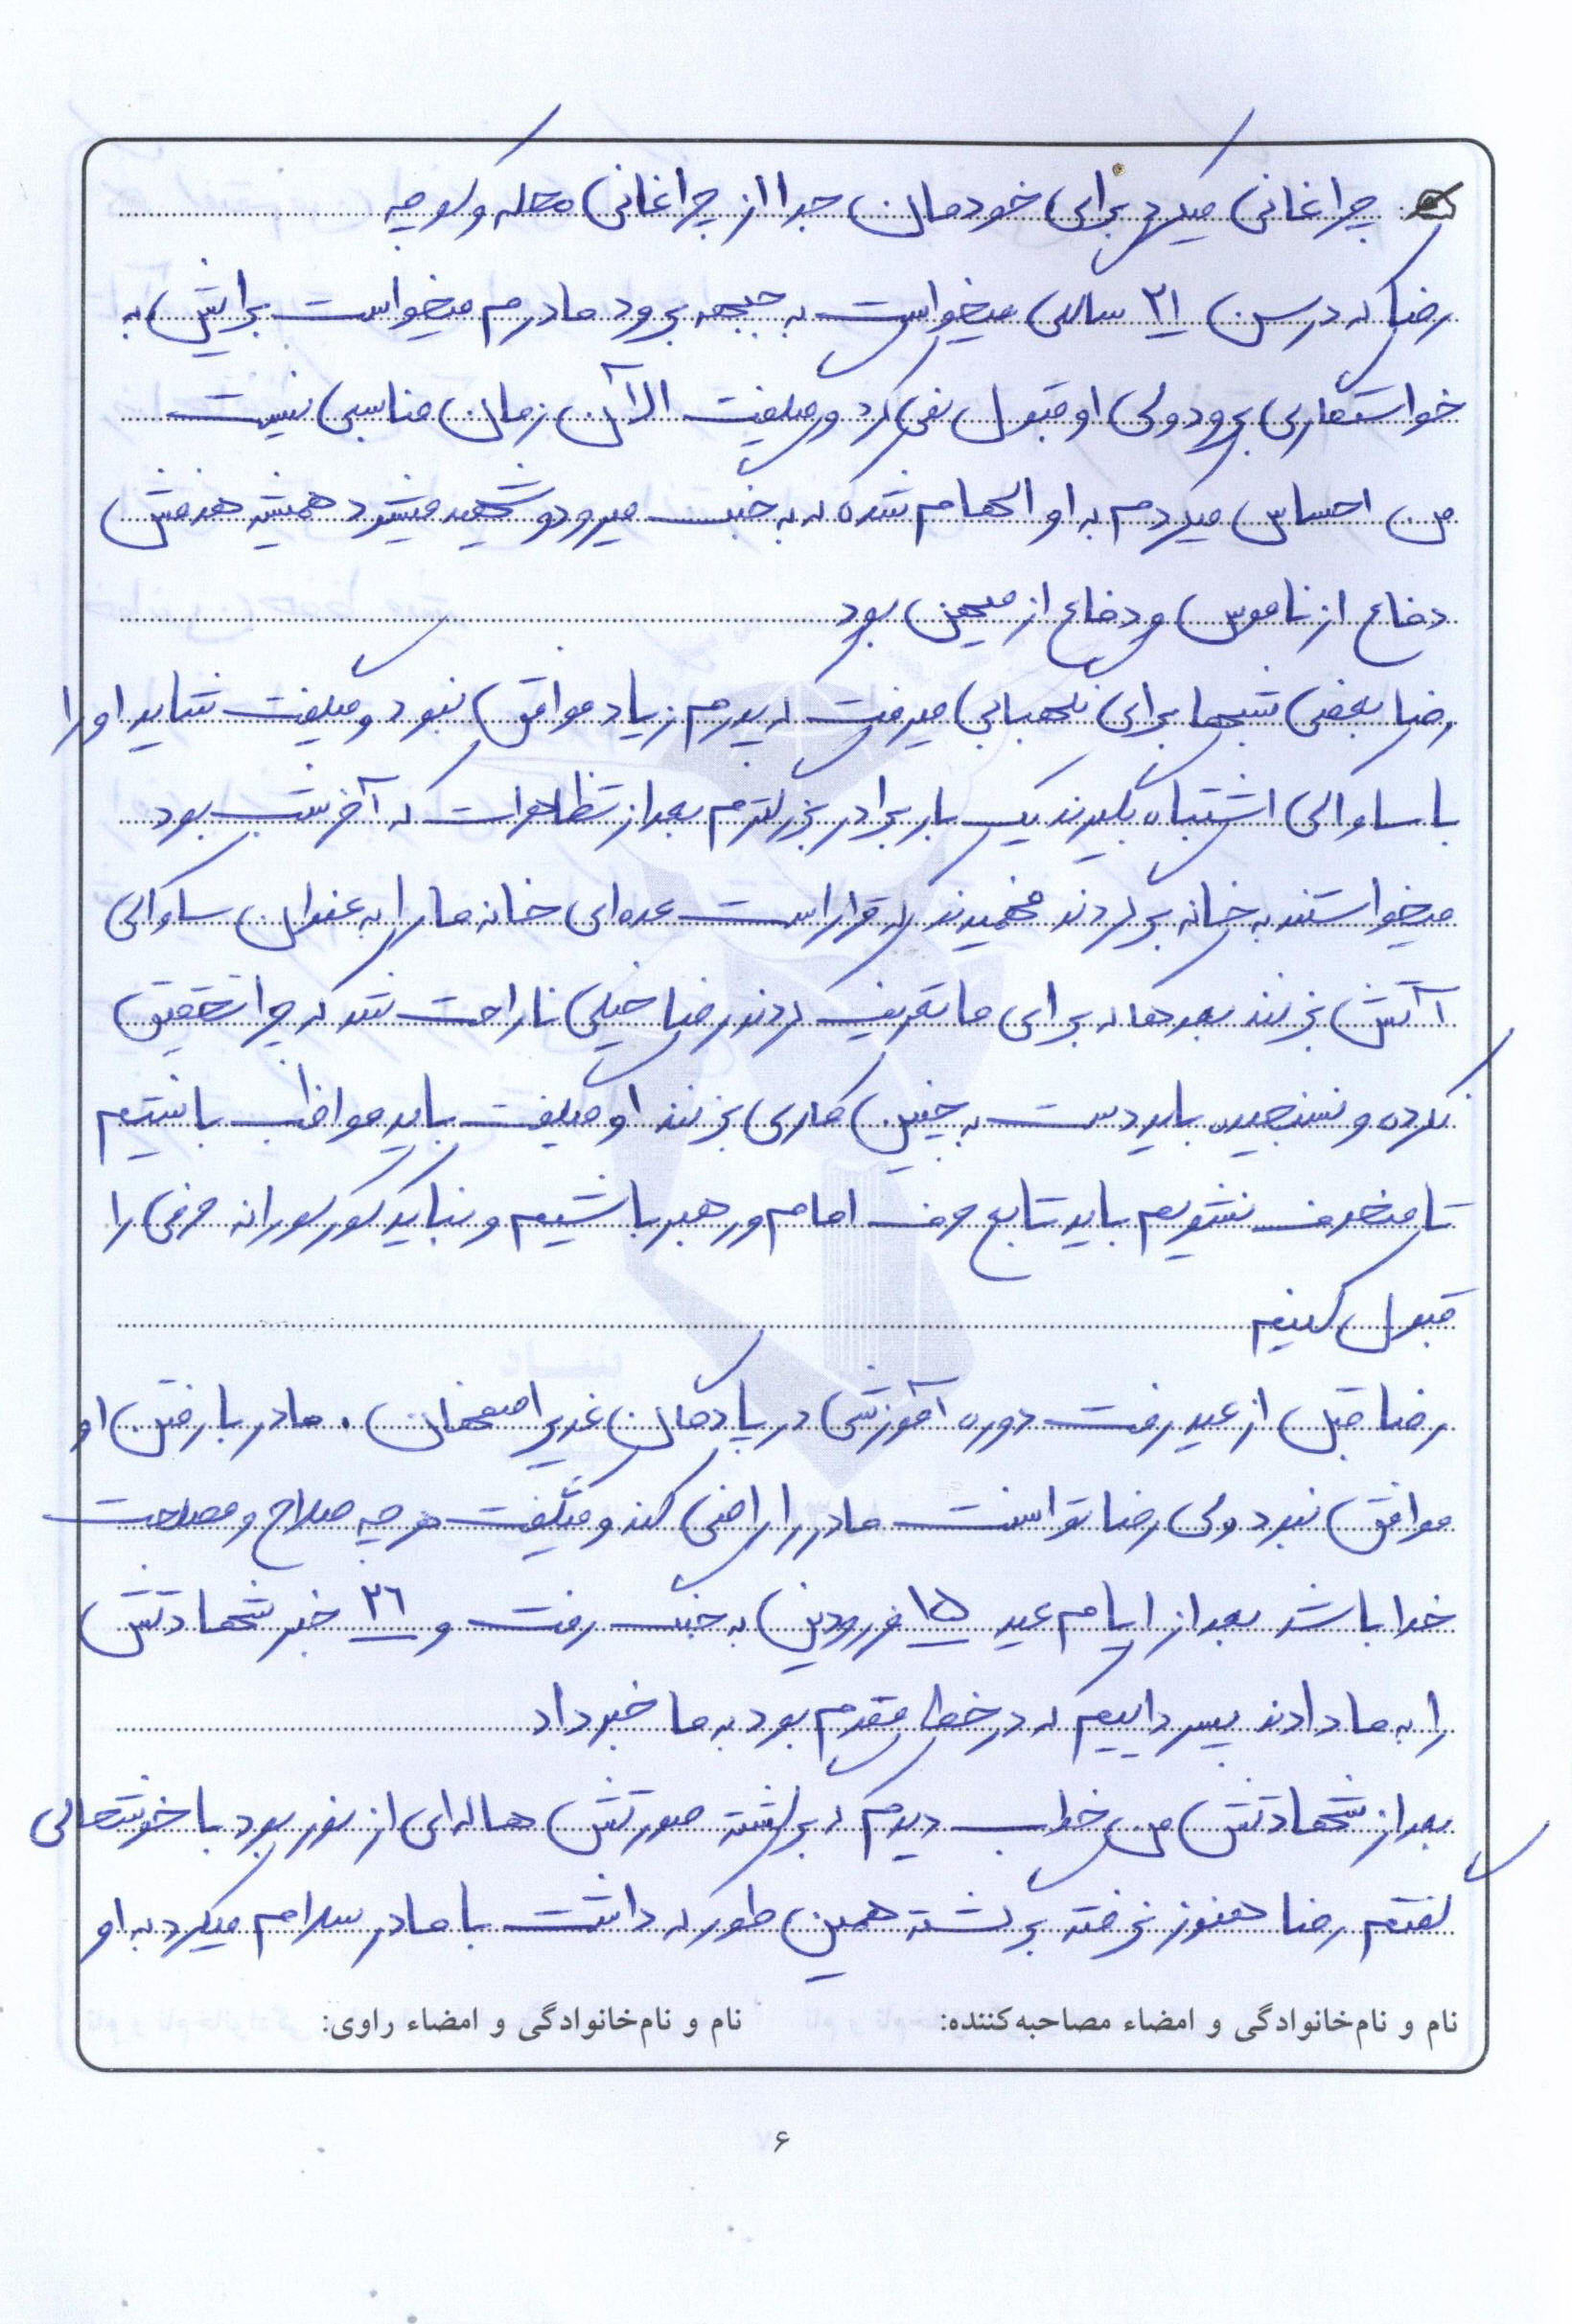 چراغانی میکرد برای خودمان جدا از چراغانی محله و کوچه
رضا که در سن ۲۱ سالگی میخواست به جبهه برود مادرم میخواست برایش به
خواستگاری برود ولی او قبول نمی کرد و میگفت الآن زمان مناسبی نیست
من احساس میکردم به او الهام شده که به جنگ میرود و شهید میشود همیشه هدفش
دفاع از ناموس و دفاع از میهن بود
رضا بعضی شبها برای نگهبانی میرفت که پدرم زیاد موافق نبود و میگفت شاید او را
با ساواکی اشتباه بگیرند یک بار برادر بزرگترم بعد از تظاهرات که آخر شب بود
میخواستند به خانه برگردند فهمیدند که قرار است عده‌ای خانه ما را به عنوان ساواکی
آتش بزنند بعدها که برای ما تعریف کردند رضا خیلی ناراحت شد که چرا تحقیق
نکرده و نسنجیده باید دست به چنین کاری بزنند او میگفت باید مواظب باشیم
تا منحرف نشویم باید تابع حرف امام و رهبر باشیم و نباید کورکورانه حرفی را
قبول کنیم
رضا قبل از عید رفت دوره آموزشی در پادگان غدیر اصفهان . مادر با رفتن او
موافق نبود ولی رضا توانست مادر را راضی کند و میگفت هر چه صلاح و مصلحت
خدا باشد بعد از ایام عید ۱۵ فروردین به جنگ رفت و ۲۶ خبر شهادتش
را به ما دادند پسر داییم که در خط مقدم بود به ما خبر داد
بعد از شهادتش من خواب دیدم که برگشته صورتش هاله‌ای از نور بود با خوشحالی
گفتم رضا هنوز نرفته برگشته همین طور که داشت با مادر سلام میکرد به او
نام و نام‌خانوادگی و امضاء مصاحبه‌کننده: نام و نام‌خانوادگی و امضاء راوی:
۶